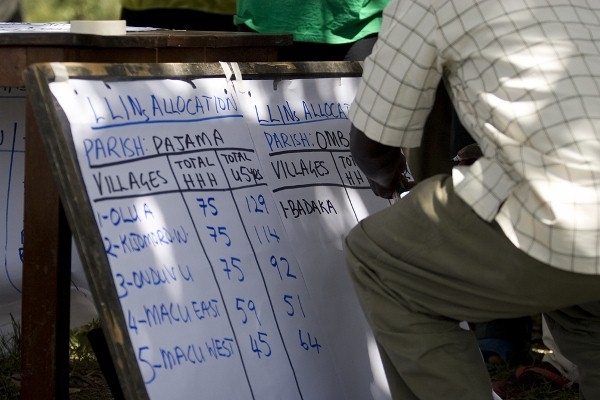 LLINs ALLOCATION
PARISH: PAJAMA
VILLAGES TOTAL HHH TOTAL U5yrs
1-OLUA 75 129
75 114
3- 75 92
4-MACU EAST 59 51
5-MACU WEST 45 64
LLINs ALLOCAT
PARISH: OMB
VILLAGES TOTAL HH
1-BADAKA